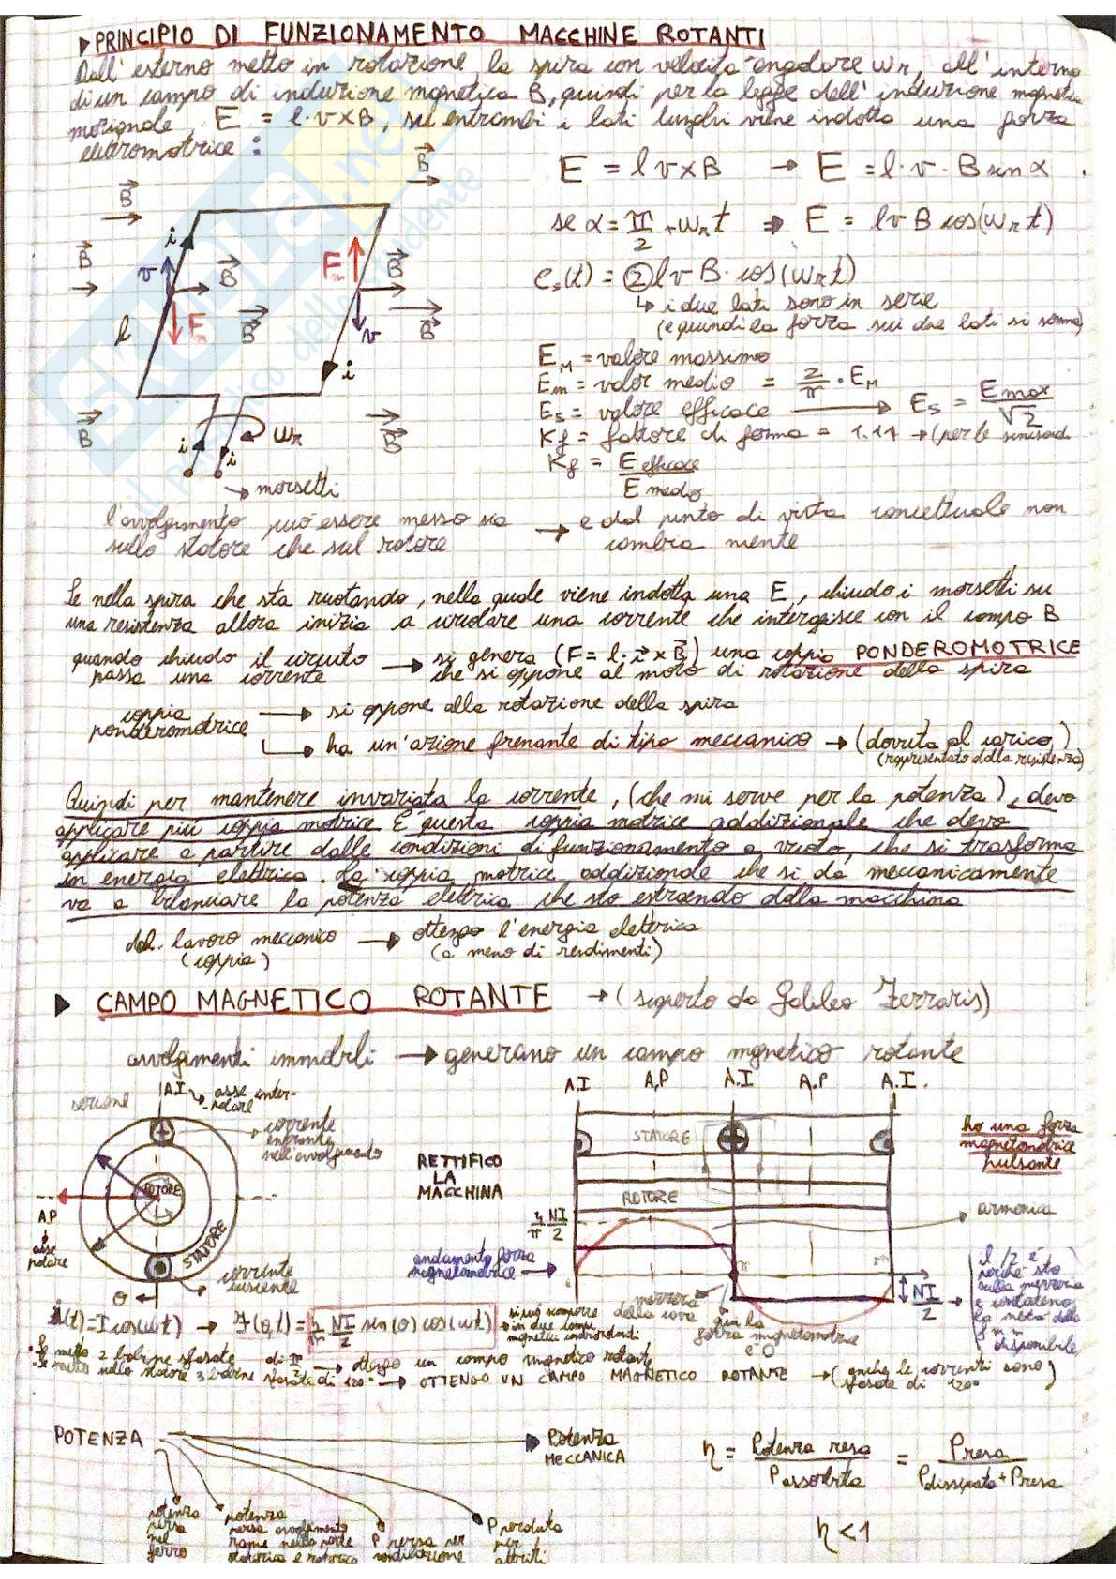 ▶ PRINCIPIO DI FUNZIONAMENTO MACCHINE ROTANTI
Dall'esterno metto in rotazione la spira con velocità angolare ωr, all'interno
di un campo di induzione mgnetica B, quindi per la legge dell'induzione mgnetica
mozionale, E = l·v×B, su entrambi i lati lunghi viene indotta una forza
elettromotrice:
E = l v×B → E = l·v·B sin α
se α = π/2 + ωr t ⇒ E = l v B cos(ωr t)
es(t) = 2 l v B · cos(ωr t)
↳ i due lati sono in serie
(e quindi la forza sui due lati si somma)
EM = valore massimo
Em = valor medio = 2/π · EM
Es = valore efficace → Es = Emax/√2
Kf = fattore di forma = 1.11 → (per le sinusoid.
Kf = E efficace / E medio
B B
B v B F B
l F B v B
i i
B ωr B
i i
→ morsetti
l'avvolgimento può essere messo sia → e dal punto di vista concettuale non
sullo statore che sul rotore cambia niente
Se nella spira che sta ruotando, nella quale viene indotta una E, chiudo i morsetti su
una resistenza allora inizia a circolare una corrente che interagisce con il campo B
quando chiudo il circuito → si genera (F = l·i×B) una coppia PONDEROMOTRICE
passa una corrente che si oppone al moto di rotazione della spira
coppia ponderomotrice → si oppone alla rotazione della spira
→ ha un'azione frenante di tipo meccanico → (dovuta al carico)
(rappresentato dalla resistenza)
Quindi per mantenere invariata la corrente, (che mi serve per la potenza), devo
applicare più coppia motrice E questa coppia motrice addizionale che devo
applicare a partire dalle condizioni di funzionamento a vuoto, che si trasforma
in energia elettrica. La coppia motrice addizionale che si da meccanicamente
va a bilanciare la potenza elettrica che sto estraendo dalla macchina
dal lavoro meccanico → ottengo l'energia elettrica
(coppia) (a meno di rendimenti)
▶ CAMPO MAGNETICO ROTANTE → (scoperto da Galileo Ferraris)
avvolgimenti immobili → generano un campo mgnetico rotante
sezione A.I → asse inter-
-polare
corrente
entrante
nell'avvolgimento
ROTORE
STATORE
A.P
asse
polare
corrente
uscente
θ
RETTIFICO
LA
MACCHINA
A.I A.P A.I A.P A.I.
STATORE
ROTORE
4/π NI/2
andamento forza
magnetomotrice →
ho una forza
magnetomotrice
pulsante
armonica
NI/2 → il /2 è
perchè sto
sulla mezzeria
e concateno
la metà della
f m m
disponibile
mezzeria
della cava
qui la
forza magnetomotrice
è 0
i(t) = I cos(ωt) → F(θ,t) = 4/π NI/2 sin(θ) cos(ωt) si può scomporre
→ in due campi
magnetici controrotanti
• Se metto 2 bobine sfasate di π/2 → ottengo un campo magnetico rotante
• Se metto nello statore 3 bobine sfasate di 120° → OTTENGO UN CAMPO MAGNETICO ROTANTE → (anche le correnti sono
sfasate di 120°)
POTENZA → Potenza
MECCANICA
η = Potenza resa / P assorbita = Presa / Pdissipata + Presa
potenza
persa
nel
ferro
potenza
persa avvolgimento
rame nella parte
statorica e rotorica
P persa per
ventilazione
P perduta
per
attriti
η < 1